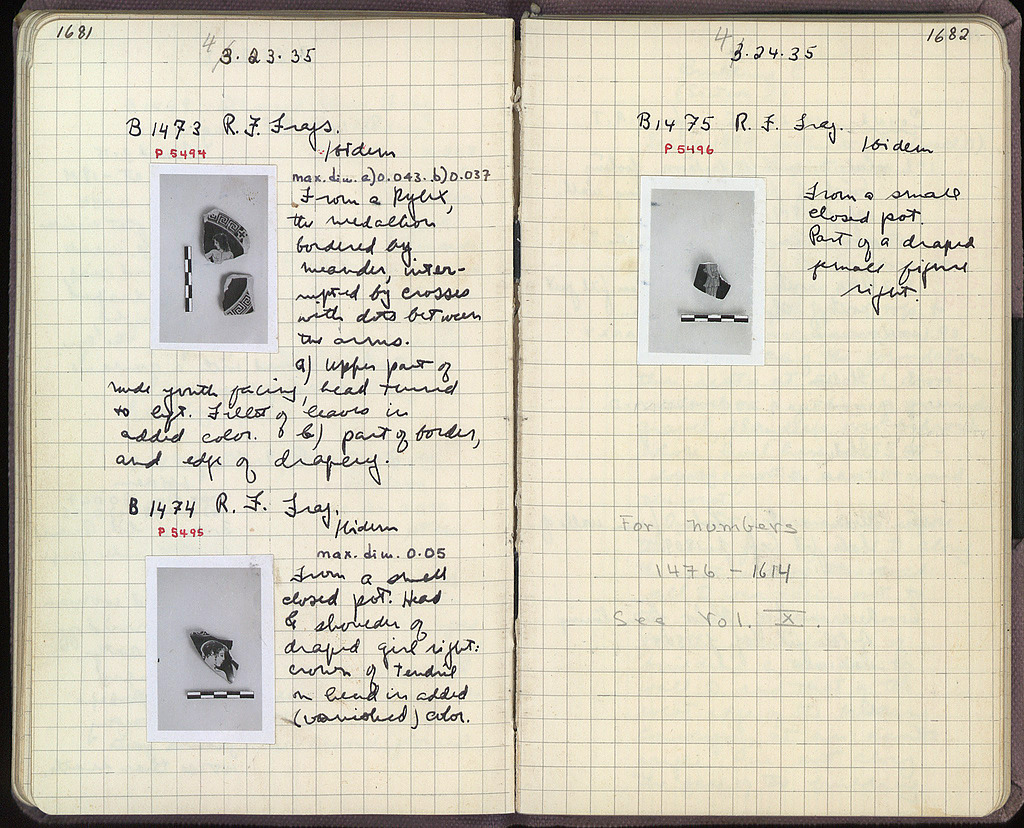 1681
4
3.23.35
B 1473 R.F. Frags.
P 5494
Ibidem
max. dim. a) 0.043. b) 0.037
From a Kylix,
the medallion
bordered by
meander, inter-
rupted by crosses
with dots between
the arms.
a) Upper part of
nude youth facing, head turned
to left. Fillet of leaves in
added color. b) part of border,
and edge of drapery.
B 1474 R. F. Frag.
P 5495
Ibidem
max. dim. 0.05
From a small
closed pot. Head
& shoulder of
draped girl right:
crown of tendril
on head in added
(vanished) color.
1682
4
3.24.35
B 1475 R. F. Frag.
P 5496
Ibidem
From a small
closed pot
Part of a draped
female figure
right.
For numbers
1476 – 1614
See Vol. X.